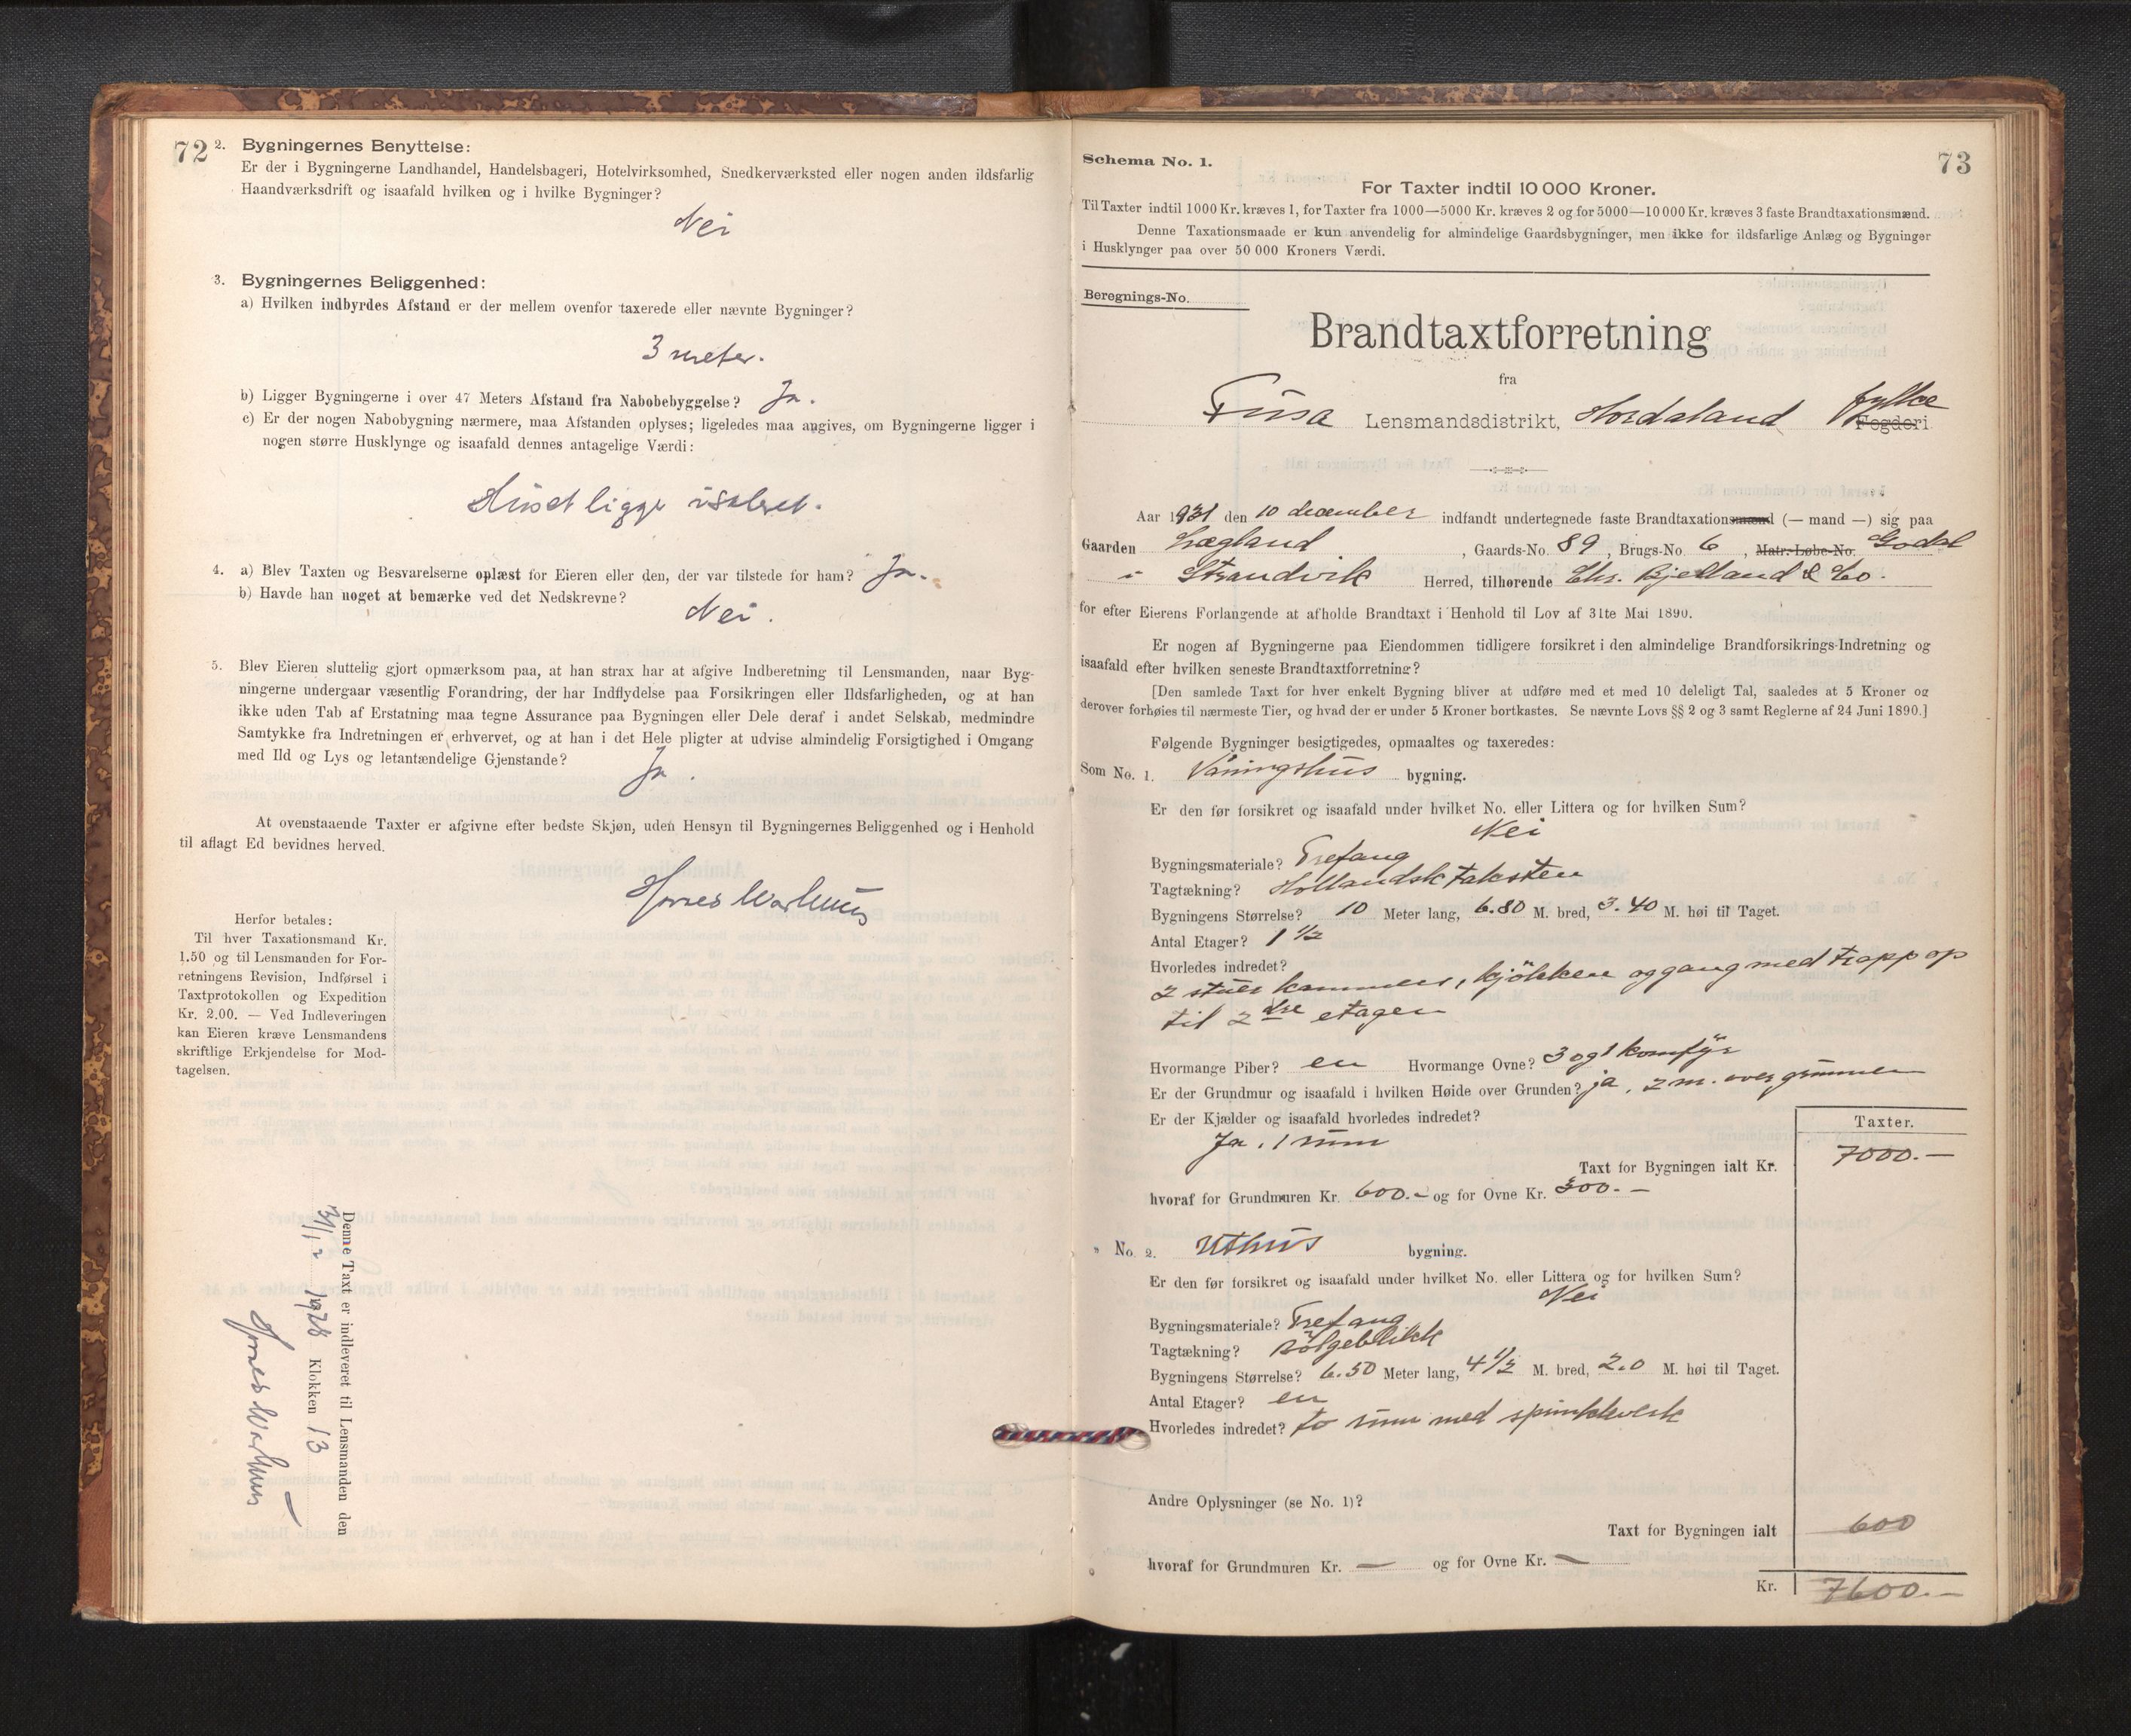 72
2. Bygningernes Benyttelse:
Er der i Bygningerne Landhandel, Handelsbageri, Hotelvirksomhed, Snedkerværksted eller nogen anden ildsfarlig
Haandværksdrift og isaafald hvilken og i hvilke Bygninger?
Nei
3. Bygningernes Beliggenhed:
a) Hvilken indbyrdes Afstand er der mellem ovenfor taxerede eller nævnte Bygninger?
3 meter.
b) Ligger Bygningerne i over 47 Meters Afstand fra Nabobebyggelse? Ja.
c) Er der nogen Nabobygning nærmere, maa Afstanden oplyses; ligeledes maa angives, om Bygningerne ligger i
nogen større Husklynge og isaafald dennes antagelige Værdi:
Huset ligger isoleret.
4. a) Blev Taxten og Besvarelserne oplæst for Eieren eller den, der var tilstede for ham? Ja.
b) Havde han noget at bemærke ved det Nedskrevne?
Nei.
5. Blev Eieren sluttelig gjort opmærksom paa, at han strax har at afgive Indberetning til Lensmanden, naar Byg-
ningerne undergaar væsentlig Forandring, der har Indflydelse paa Forsikringen eller Ildsfarligheden, og at han
ikke uden Tab af Erstatning maa tegne Assurance paa Bygningen eller Dele deraf i andet Selskab, medmindre
Samtykke fra Indretningen er erhvervet, og at han i det Hele pligter at udvise almindelig Forsigtighed i Omgang
med Ild og Lys og letantændelige Gjenstande?
Ja.
At ovenstaaende Taxter er afgivne efter bedste Skjøn, uden Hensyn til Bygningernes Beliggenhed og i Henhold
til aflagt Ed bevidnes herved.
Herfor betales:
Til hver Taxationsmand Kr.
1.50 og til Lensmanden for For-
retningens Revision, Indførsel i
Taxtprotokollen og Expedition
Kr. 2.00. — Ved Indleveringen
kan Eieren kræve Lensmandens
skriftlige Erkjendelse for Mod-
tagelsen.
Denne Taxt er indleveret til Lensmanden den
31/12 1928 Klokken 13
73
Schema No. 1.
For Taxter indtil 10 000 Kroner.
Til Taxter indtil 1000 Kr. kræves 1, for Taxter fra 1000—5000 Kr. kræves 2 og for 5000—10 000 Kr. kræves 3 faste Brandtaxationsmænd.
Denne Taxationsmaade er kun anvendelig for almindelige Gaardsbygninger, men ikke for ildsfarlige Anlæg og Bygninger
i Husklynger paa over 50 000 Kroners Værdi.
Beregnings-No.
Brandtaxtforretning
fra
Fusa Lensmandsdistrikt, Hordaland fylke Fogderi
Aar 1931 den 10 december indfandt undertegnede faste Brandtaxationsmænd (— mand —) sig paa
Gaarden Lægland, Gaards-No. 89, Brugs-No. 6, Matr.-Løbe-No. Godal
i Strandvik Herred, tilhørende Chr. Bjelland & Co.
for efter Eierens Forlangende at afholde Brandtaxt i Henhold til Lov af 31te Mai 1890.
Er nogen af Bygningerne paa Eiendommen tidligere forsikret i den almindelige Brandforsikrings-Indretning og
isaafald efter hvilken seneste Brandtaxtforretning?
[Den samlede Taxt for hver enkelt Bygning bliver at udføre med et med 10 deleligt Tal, saaledes at 5 Kroner og
derover forhøies til nærmeste Tier, og hvad der er under 5 Kroner bortkastes. Se nævnte Lovs §§ 2 og 3 samt Reglerne af 24 Juni 1890.]
Følgende Bygninger besigtigedes, opmaaltes og taxeredes:
Som No. 1. Våningshus bygning.
Er den før forsikret og isaafald under hvilket No. eller Littera og for hvilken Sum?
Nei
Bygningsmateriale? Trefang
Tagtækning? Hollandsk taksten
Bygningens Størrelse? 10 Meter lang, 6.80 M. bred, 3.40 M. høi til Taget.
Antal Etager? 1 1/2
Hvorledes indredet?
2 stuer kammers, kjökken og gang med trapp op
til 2dre etagen
Hvormange Piber? en Hvormange Ovne? 3 og 1 komfyr
Er der Grundmur og isaafald i hvilken Høide over Grunden? ja, 2 m. over grunnen
Er der Kjælder og isaafald hvorledes indredet?
Ja, 1 rum
Taxter.
Taxt for Bygningen ialt Kr. 7000.—
hvoraf for Grundmuren Kr. 600.- og for Ovne Kr. 300.—
" No. 2. Uthus bygning.
Er den før forsikret og isaafald under hvilket No. eller Littera og for hvilken Sum?
Nei
Bygningsmateriale? Trefang
Tagtækning? Bölgeblikk
Bygningens Størrelse? 6.50 Meter lang, 4 1/2 M. bred, 2.0 M. høi til Taget.
Antal Etager? en
Hvorledes indredet? to rum med spinkkverk
Andre Oplysninger (se No. 1)?
Taxt for Bygningen ialt 600
hvoraf for Grundmuren Kr. — og for Ovne Kr. —
Kr. 7600.—